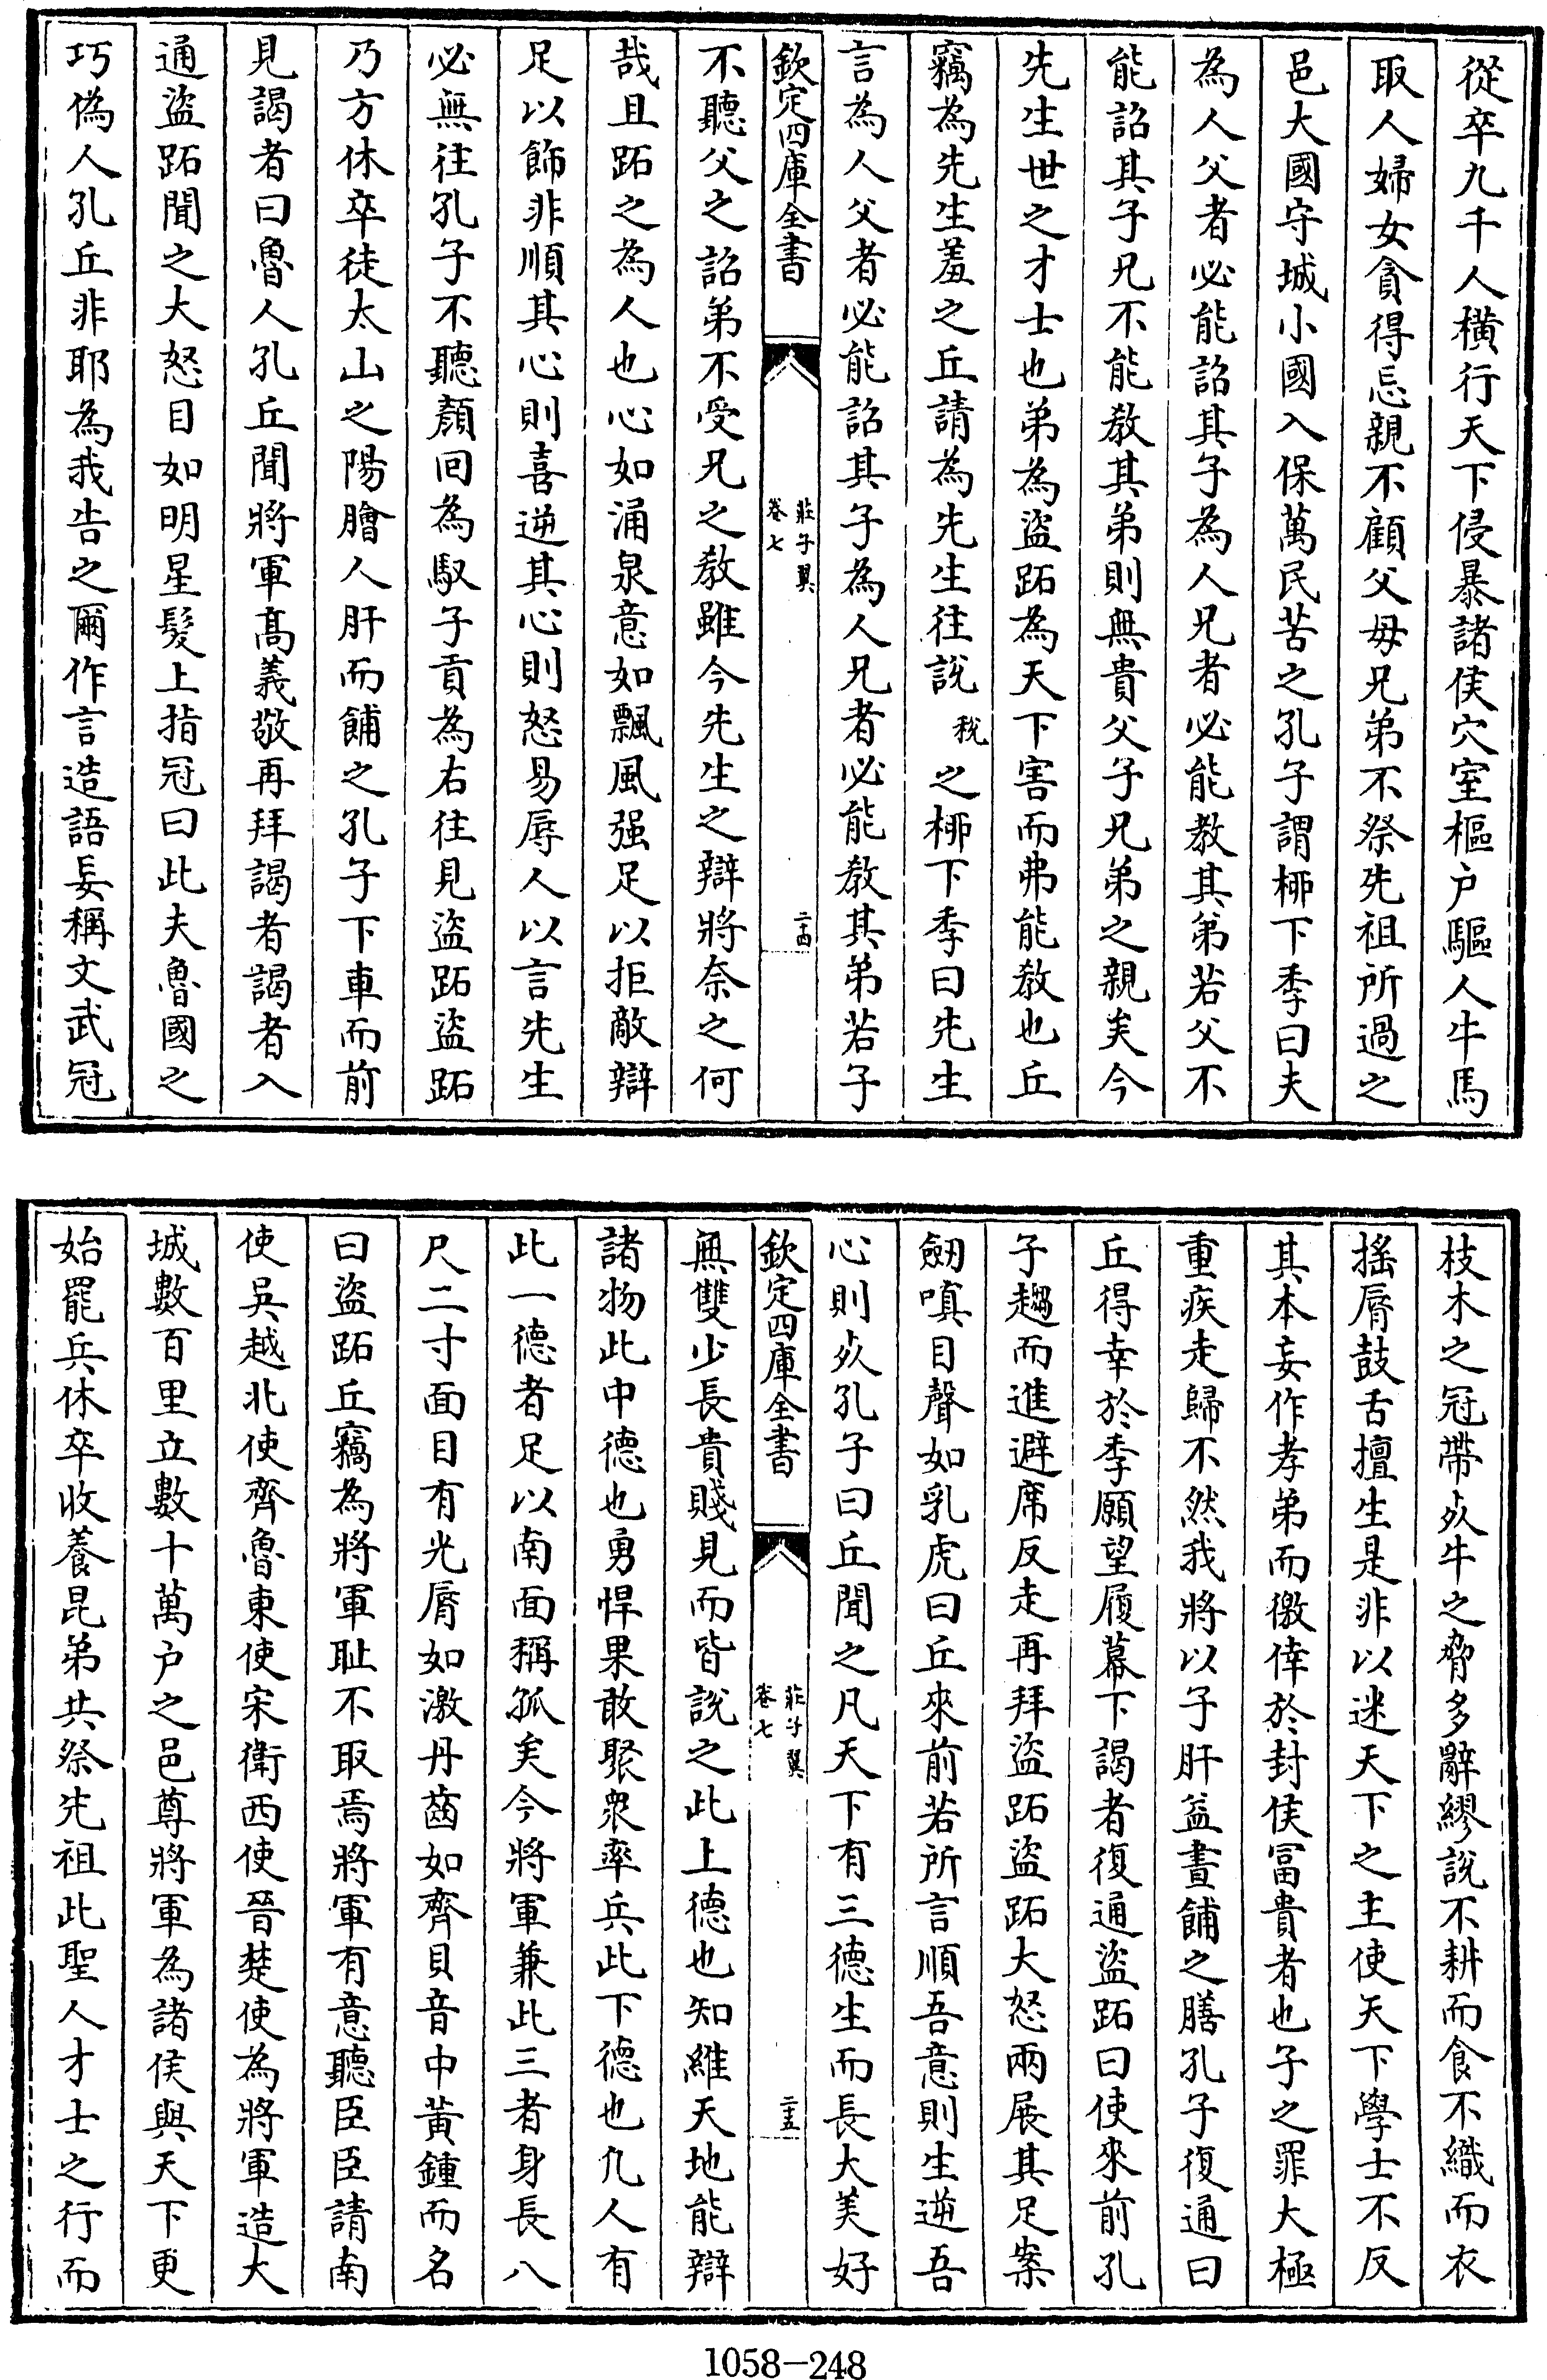 從卒九千人橫行天下侵暴諸侯穴室樞户驅人牛馬
取人婦女貪得忘親不顧父母兄弟不祭先祖所過之
邑大國守城小國入保萬民苦之孔子謂栁下季曰夫
為人父者必能詔其子為人兄者必能教其弟若父不
能詔其子兄不能教其弟則無貴父子兄弟之親矣今
先生世之才士也弟為盜跖為天下害而弗能教也丘
竊為先生羞之丘請為先生往說稅之栁下季曰先生
言為人父者必能詔其子為人兄者必能教其弟若子
欽定四庫全書
莊子翼
卷七
二十四
不聽父之詔弟不受兄之教雖今先生之辯將奈之何
哉且跖之為人也心如涌泉意如飄風强足以拒敵辯
足以飾非順其心則喜逆其心則怒易辱人以言先生
必無往孔子不聽顏回為馭子貢為右往見盜跖盜跖
乃方休卒徒太山之陽膾人肝而餔之孔子下車而前
見謁者曰魯人孔丘聞將軍髙義敬再拜謁者謁者入
通盜跖聞之大怒目如明星髮上指冠曰此夫魯國之
巧偽人孔丘非耶為我告之爾作言造語妄稱文武冠
枝木之冠帶死牛之脅多辭繆說不耕而食不織而衣
揺脣鼓舌擅生是非以迷天下之主使天下學士不反
其本妄作孝弟而徼倖於封侯富貴者也子之罪大極
重疾走歸不然我將以子肝益晝餔之膳孔子復通曰
丘得幸於季願望履幕下謁者復通盜跖曰使來前孔
子趨而進避席反走再拜盜跖盜跖大怒兩展其足案
劒嗔目聲如乳虎曰丘來前若所言順吾意則生逆吾
心則死孔子曰丘聞之凡天下有三德生而長大美好
欽定四庫全書
莊子翼
卷七
二十五
無雙少長貴賤見而皆說之此上德也知維天地能辯
諸物此中德也勇悍果敢聚衆率兵此下德也凡人有
此一德者足以南面稱孤矣今將軍兼此三者身長八
尺二寸面目有光脣如激丹齒如齊貝音中黃鍾而名
曰盜跖丘竊為將軍耻不取焉將軍有意聽臣臣請南
使吳越北使齊魯東使宋衛西使晉楚使為將軍造大
城數百里立數十萬户之邑尊將軍為諸侯與天下更
始罷兵休卒收養昆弟共祭先祖此聖人才士之行而
1058-248